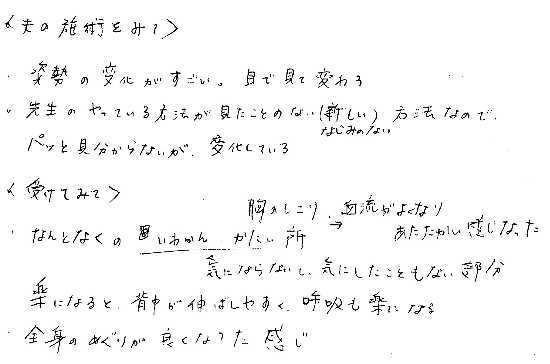 <夫の施術をみて>
・姿勢の変化がすごい。目で見て変わる
・先生のやっている方法が見たことのない(新しい)方法なので、
なじみのない
パッと見分からないが、変化している
<受けてみて>
胸のしこり、血流がよくなり
・なんとなくの いわかん がたい所 → あたたかい感じなった
気にならないし、気にしたこともない部分
楽になると、背中が伸ばしやすく、呼吸も楽になる
・全身のめぐりが良くなった感じ